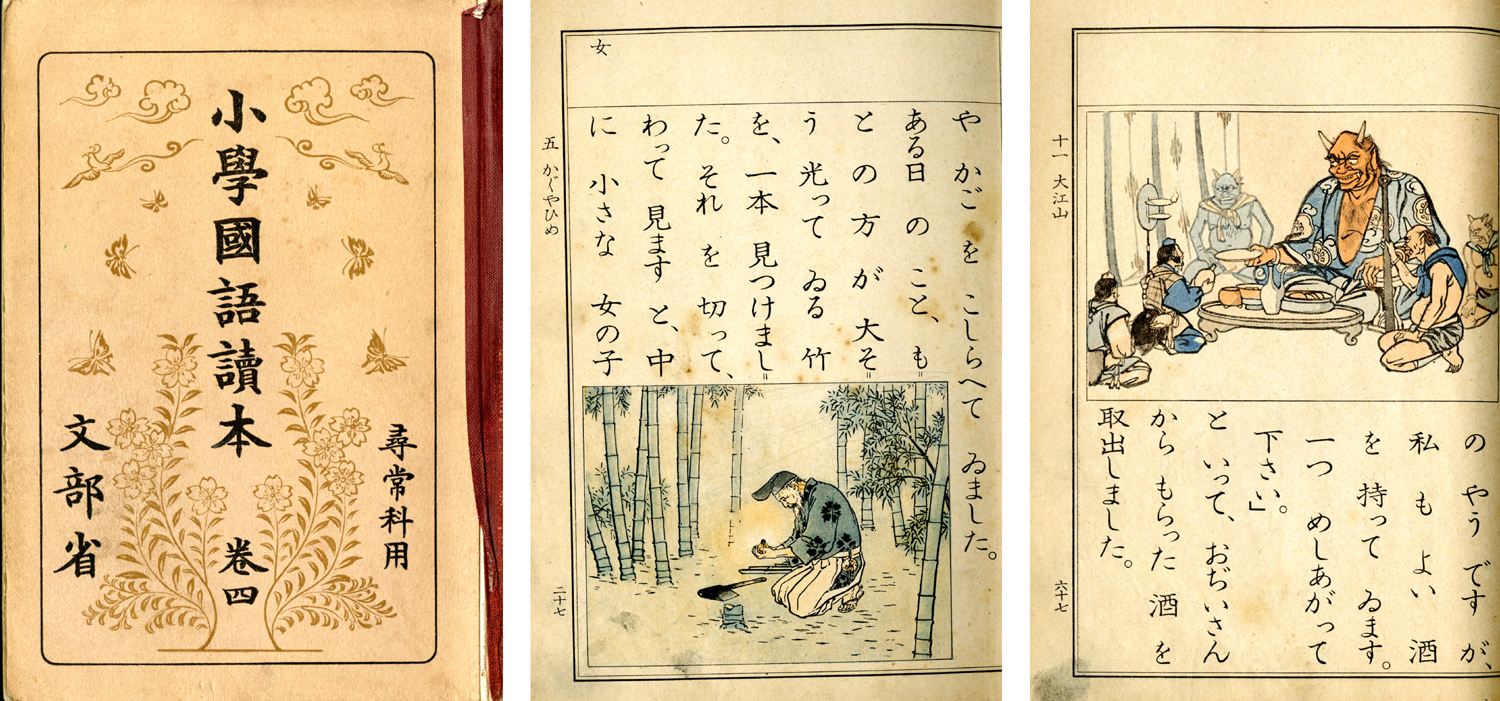 小學國語讀本
卷四
尋常科用
文部省
女
や かご を こしらへて ゐました。
ある日 の こと、も
と の 方 が 大そ
う 光って ゐる 竹
を、一本 見つけまし
た。それ を 切って、
わって 見ます と、中
に 小さな 女の子
五 かぐやひめ
二十七
の やう です が、
私 も よい 酒
を 持って ゐます。
一つ めしあがって
下さい。」
と いって、おぢいさん
から もらった 酒 を
取出しました。
十一 大江山
六十七